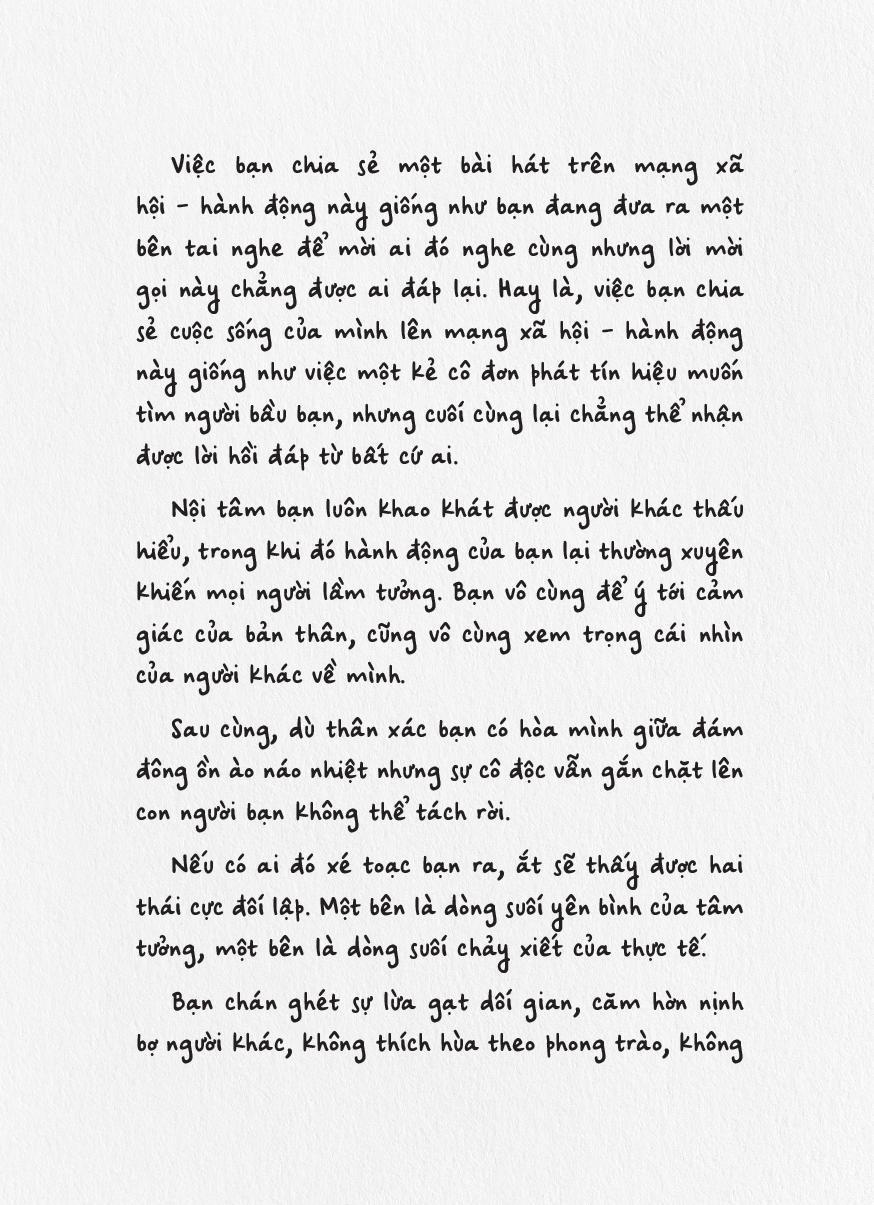 Việc bạn chia sẻ một bài hát trên mạng xã
hội - hành động này giống như bạn đang đưa ra một
bên tai nghe để mời ai đó nghe cùng nhưng lời mời
gọi này chẳng được ai đáp lại. Hay là, việc bạn chia
sẻ cuộc sống của mình lên mạng xã hội - hành động
này giống như việc một kẻ cô đơn phát tín hiệu muốn
tìm người bầu bạn, nhưng cuối cùng lại chẳng thể nhận
được lời hồi đáp từ bất cứ ai.
Nội tâm bạn luôn khao khát được người khác thấu
hiểu, trong khi đó hành động của bạn lại thường xuyên
khiến mọi người lầm tưởng. Bạn vô cùng để ý tới cảm
giác của bản thân, cũng vô cùng xem trọng cái nhìn
của người khác về mình.
Sau cùng, dù thân xác bạn có hòa mình giữa đám
đông ồn ào náo nhiệt nhưng sự cô độc vẫn gắn chặt lên
con người bạn không thể tách rời.
Nếu có ai đó xé toạc bạn ra, ắt sẽ thấy được hai
thái cực đối lập. Một bên là dòng suối yên bình của tâm
tưởng, một bên là dòng suối chảy xiết của thực tế.
Bạn chán ghét sự lừa gạt dối gian, căm hờn nịnh
bợ người khác, không thích hùa theo phong trào, không